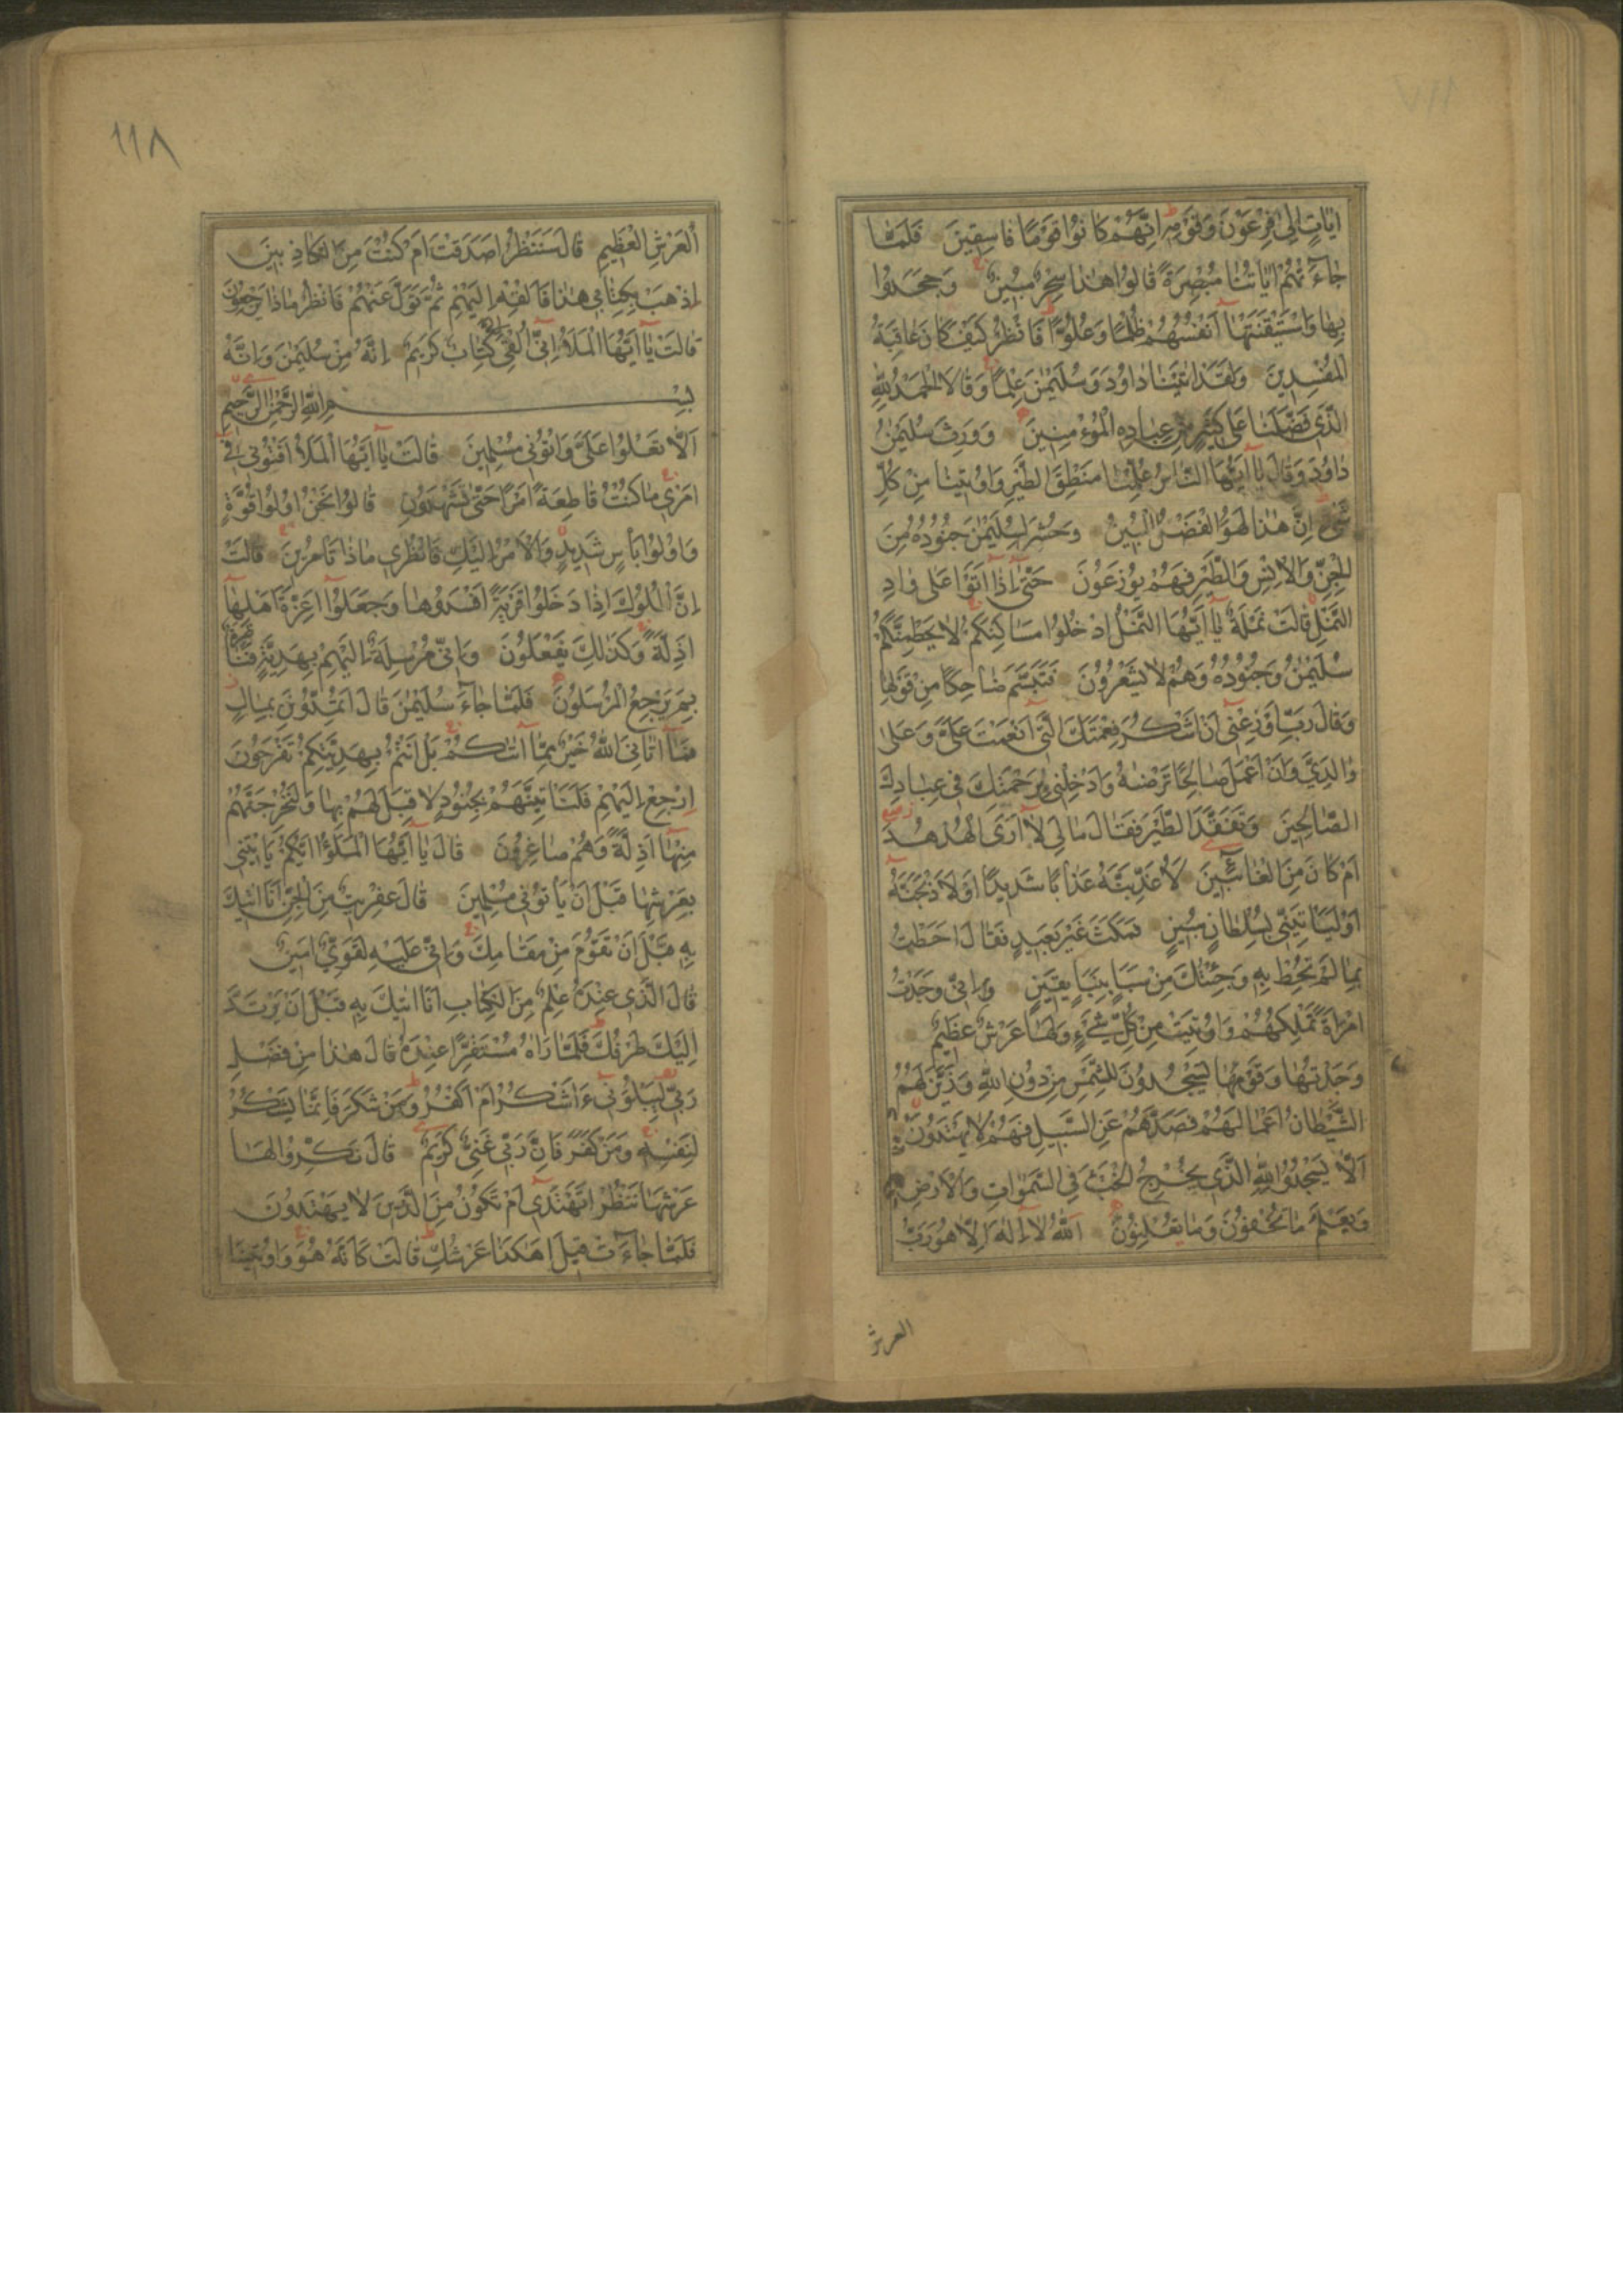 اٰيَاتٍ اِلٰى فِرْعَوْنَ وَقَوْمِهِ اِنَّهُمْ كَانُوا قَوْمًا فَاسِقِينَ فَلَمَّا
جَاءَتْهُمْ اٰيَاتُنَا مُبْصِرَةً قَالُوا هٰذَا سِحْرٌ مُبِينٌ وَجَحَدُوا
بِهَا وَاسْتَيْقَنَتْهَا اَنْفُسُهُمْ ظُلْمًا وَعُلُوًّا فَانْظُرْ كَيْفَ كَانَ عَاقِبَةُ
الْمُفْسِدِينَ وَلَقَدْ اٰتَيْنَا دَاوُدَ وَسُلَيْمٰنَ عِلْمًا وَقَالَا الْحَمْدُ لِلّٰهِ
الَّذِي فَضَّلَنَا عَلٰى كَثِيرٍ مِنْ عِبَادِهِ الْمُؤْمِنِينَ وَوَرِثَ سُلَيْمٰنُ
دَاوُدَ وَقَالَ يَا اَيُّهَا النَّاسُ عُلِّمْنَا مَنْطِقَ الطَّيْرِ وَاُوتِينَا مِنْ كُلِّ
شَيْءٍ اِنَّ هٰذَا لَهُوَ الْفَضْلُ الْمُبِينُ وَحُشِرَ لِسُلَيْمٰنَ جُنُودُهُ مِنَ
الْجِنِّ وَالْاِنْسِ وَالطَّيْرِ فَهُمْ يُوزَعُونَ حَتّٰى اِذَا اَتَوْا عَلٰى وَادِ
النَّمْلِ قَالَتْ نَمْلَةٌ يَا اَيُّهَا النَّمْلُ ادْخُلُوا مَسَاكِنَكُمْ لَا يَحْطِمَنَّكُمْ
سُلَيْمٰنُ وَجُنُودُهُ وَهُمْ لَا يَشْعُرُونَ فَتَبَسَّمَ ضَاحِكًا مِنْ قَوْلِهَا
وَقَالَ رَبِّ اَوْزِعْنِي اَنْ اَشْكُرَ نِعْمَتَكَ الَّتِي اَنْعَمْتَ عَلَيَّ وَعَلٰى
وَالِدَيَّ وَاَنْ اَعْمَلَ صَالِحًا تَرْضٰيهُ وَاَدْخِلْنِي بِرَحْمَتِكَ فِي عِبَادِكَ
الصَّالِحِينَ وَتَفَقَّدَ الطَّيْرَ فَقَالَ مَا لِيَ لَا اَرَى الْهُدْهُدَ
اَمْ كَانَ مِنَ الْغَائِبِينَ لَاُعَذِّبَنَّهُ عَذَابًا شَدِيدًا اَوْ لَاَذْبَحَنَّهُ
اَوْ لَيَأْتِيَنِّي بِسُلْطَانٍ مُبِينٍ فَمَكَثَ غَيْرَ بَعِيدٍ فَقَالَ اَحَطْتُ
بِمَا لَمْ تُحِطْ بِهِ وَجِئْتُكَ مِنْ سَبَاٍ بِنَبَاٍ يَقِينٍ اِنِّي وَجَدْتُ
امْرَاَةً تَمْلِكُهُمْ وَاُوتِيَتْ مِنْ كُلِّ شَيْءٍ وَلَهَا عَرْشٌ عَظِيمٌ
وَجَدْتُهَا وَقَوْمَهَا يَسْجُدُونَ لِلشَّمْسِ مِنْ دُونِ اللّٰهِ وَزَيَّنَ لَهُمُ
الشَّيْطَانُ اَعْمَالَهُمْ فَصَدَّهُمْ عَنِ السَّبِيلِ فَهُمْ لَا يَهْتَدُونَ
اَلَّا يَسْجُدُوا لِلّٰهِ الَّذِي يُخْرِجُ الْخَبْءَ فِي السَّمٰوَاتِ وَالْاَرْضِ
وَيَعْلَمُ مَا تُخْفُونَ وَمَا تُعْلِنُونَ اَللّٰهُ لَا اِلٰهَ اِلَّا هُوَ رَبُّ
العرش
١١٨
الْعَرْشِ الْعَظِيمِ قَالَ سَنَنْظُرُ اَصَدَقْتَ اَمْ كُنْتَ مِنَ الْكَاذِبِينَ
اِذْهَبْ بِكِتَابِي هٰذَا فَاَلْقِهْ اِلَيْهِمْ ثُمَّ تَوَلَّ عَنْهُمْ فَانْظُرْ مَاذَا يَرْجِعُونَ
قَالَتْ يَا اَيُّهَا الْمَلَاُ اِنِّي اُلْقِيَ اِلَيَّ كِتَابٌ كَرِيمٌ اِنَّهُ مِنْ سُلَيْمٰنَ وَاِنَّهُ
بِسْمِ اللّٰهِ الرَّحْمٰنِ الرَّحِيمِ
اَلَّا تَعْلُوا عَلَيَّ وَأْتُونِي مُسْلِمِينَ قَالَتْ يَا اَيُّهَا الْمَلَاُ اَفْتُونِي فِي
اَمْرِي مَا كُنْتُ قَاطِعَةً اَمْرًا حَتّٰى تَشْهَدُونِ قَالُوا نَحْنُ اُولُوا قُوَّةٍ
وَاُولُوا بَأْسٍ شَدِيدٍ وَالْاَمْرُ اِلَيْكِ فَانْظُرِي مَاذَا تَأْمُرِينَ قَالَتْ
اِنَّ الْمُلُوكَ اِذَا دَخَلُوا قَرْيَةً اَفْسَدُوهَا وَجَعَلُوا اَعِزَّةَ اَهْلِهَا
اَذِلَّةً وَكَذٰلِكَ يَفْعَلُونَ وَاِنِّي مُرْسِلَةٌ اِلَيْهِمْ بِهَدِيَّةٍ فَنَاظِرَةٌ
بِمَ يَرْجِعُ الْمُرْسَلُونَ فَلَمَّا جَاءَ سُلَيْمٰنَ قَالَ اَتُمِدُّونَنِ بِمَالٍ
فَمَا اٰتَانِيَ اللّٰهُ خَيْرٌ مِمَّا اٰتٰىكُمْ بَلْ اَنْتُمْ بِهَدِيَّتِكُمْ تَفْرَحُونَ
اِرْجِعْ اِلَيْهِمْ فَلَنَأْتِيَنَّهُمْ بِجُنُودٍ لَا قِبَلَ لَهُمْ بِهَا وَلَنُخْرِجَنَّهُمْ
مِنْهَا اَذِلَّةً وَهُمْ صَاغِرُونَ قَالَ يَا اَيُّهَا الْمَلَؤُا اَيُّكُمْ يَأْتِينِي
بِعَرْشِهَا قَبْلَ اَنْ يَأْتُونِي مُسْلِمِينَ قَالَ عِفْرِيتٌ مِنَ الْجِنِّ اَنَا اٰتِيكَ
بِهِ قَبْلَ اَنْ تَقُومَ مِنْ مَقَامِكَ وَاِنِّي عَلَيْهِ لَقَوِيٌّ اَمِينٌ
قَالَ الَّذِي عِنْدَهُ عِلْمٌ مِنَ الْكِتَابِ اَنَا اٰتِيكَ بِهِ قَبْلَ اَنْ يَرْتَدَّ
اِلَيْكَ طَرْفُكَ فَلَمَّا رَاٰهُ مُسْتَقِرًّا عِنْدَهُ قَالَ هٰذَا مِنْ فَضْلِ
رَبِّي لِيَبْلُوَنِي ءَاَشْكُرُ اَمْ اَكْفُرُ وَمَنْ شَكَرَ فَاِنَّمَا يَشْكُرُ
لِنَفْسِهِ وَمَنْ كَفَرَ فَاِنَّ رَبِّي غَنِيٌّ كَرِيمٌ قَالَ نَكِّرُوا لَهَا
عَرْشَهَا نَنْظُرْ اَتَهْتَدِي اَمْ تَكُونُ مِنَ الَّذِينَ لَا يَهْتَدُونَ
فَلَمَّا جَاءَتْ قِيلَ اَهٰكَذَا عَرْشُكِ قَالَتْ كَاَنَّهُ هُوَ وَاُوتِينَا